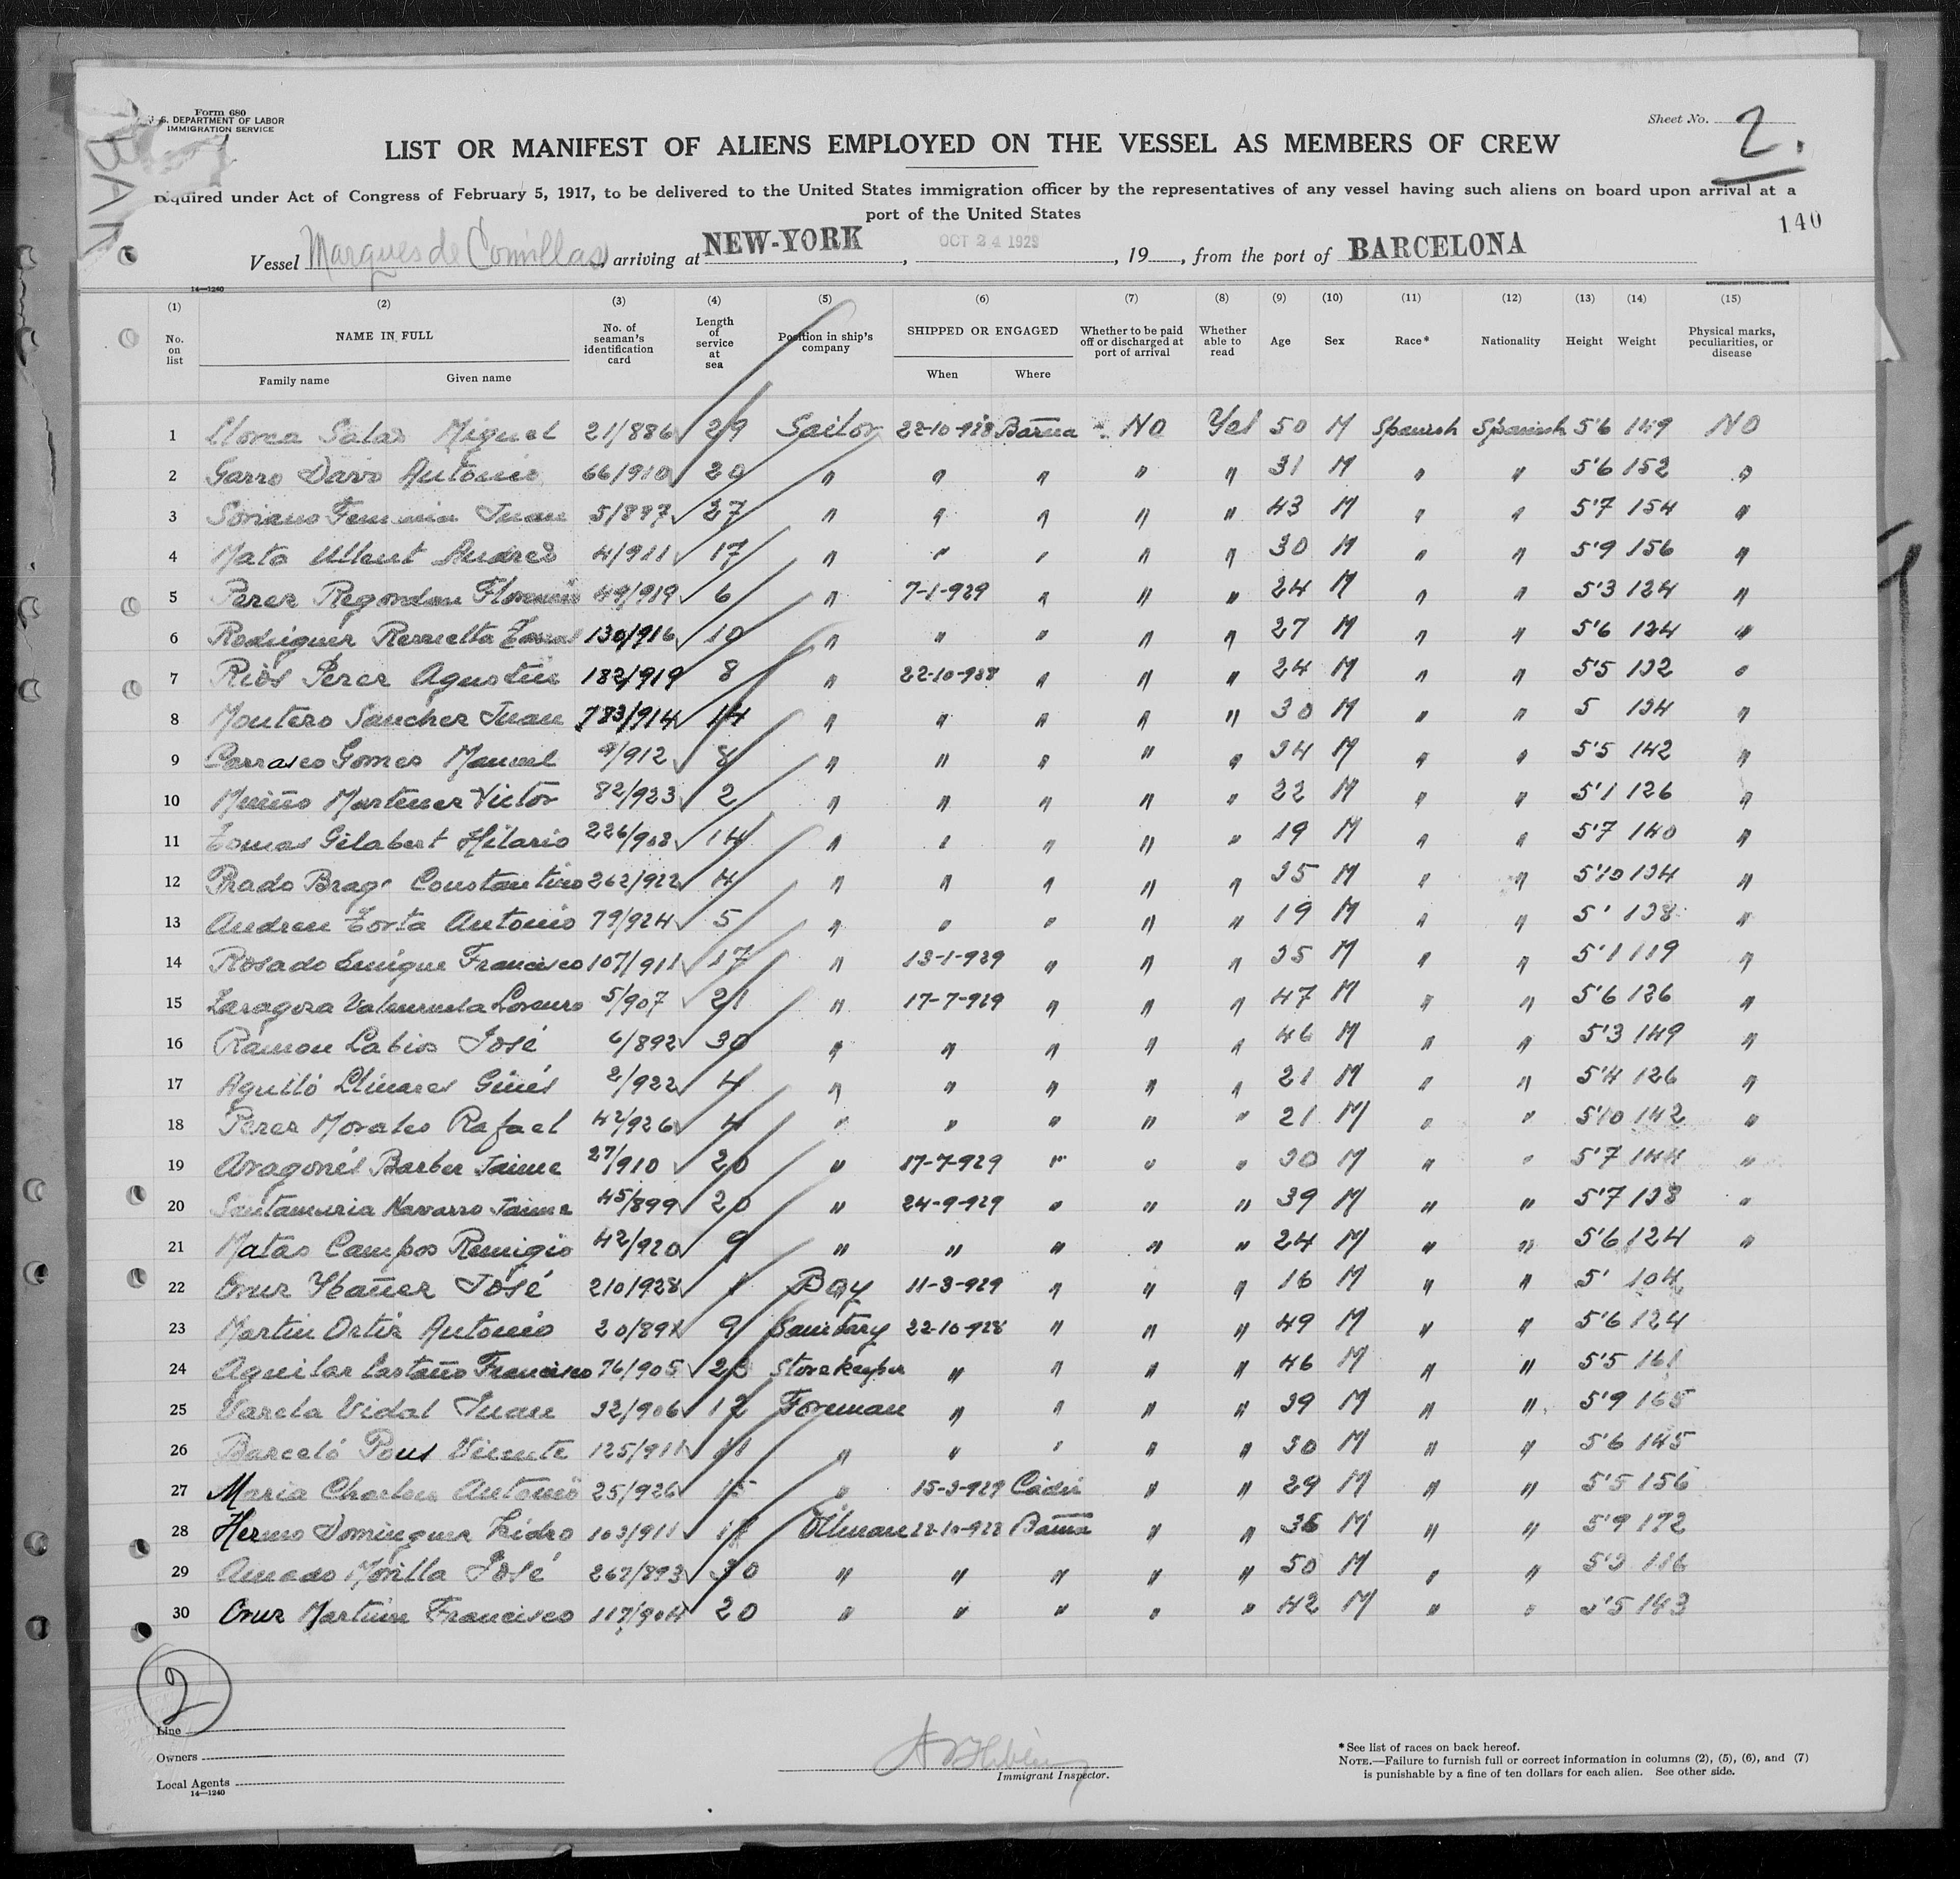 Form 680
U. S. DEPARTMENT OF LABOR
IMMIGRATION SERVICE
Sheet No. 2.
LIST OR MANIFEST OF ALIENS EMPLOYED ON THE VESSEL AS MEMBERS OF CREW
required under Act of Congress of February 5, 1917, to be delivered to the United States immigration officer by the representatives of any vessel having such aliens on board upon arrival at a
port of the United States
140
Vessel Marques de Comillas, arriving at NEW-YORK, OCT 24 1929, 19, from the port of BARCELONA
14—1240
(1) (2) (3) (4) (5) (6) (7) (8) (9) (10) (11) (12) (13) (14) (15)
No. on list NAME IN FULL No. of seaman's identification card Length of service at sea Position in ship's company SHIPPED OR ENGAGED Whether to be paid off or discharged at port of arrival Whether able to read Age Sex Race* Nationality Height Weight Physical marks, peculiarities, or disease
Family name Given name When Where
1 Llorca Salas Miguel 21/886 29 Sailor 22-10-928 Barna No Yes 50 M Spanish Spanish 5'6 No
2 Garro Davo Antonio 66/910 20 " " " " " 31 M " " 5'6 152 "
3 Soriano Juan 5/887 27 " " " " " 43 M " " 5'7 154 "
4 Mato Ullent Andres 4/911 17 " " " " " 30 M " " 5'9 156 "
5 Perez Regondan 49/919 6 " 7-1-929 " " " 24 M " " 5'3 124 "
6 Rodriguez 130/916 10 " " " " " 27 M " " 5'6 134 "
7 Rios Perez Agustin 182/919 8 " 22-10-928 " " " 24 M " " 5'5 132 "
8 Montero Sanchez Juan 783/914 14 " " " " " 30 M " " 5 134 "
9 Carrasco Gomes Manuel 9/912 8 " " " " " 34 M " " 5'5 142 "
10 Muiño Martenez Victor 82/923 2 " " " " " 22 M " " 5'1 126 "
11 Tomas Gilabert Hilario 226/908 14 " " " " " 19 M " " 5'7 140 "
12 Prado Constantino 262/922 4 " " " " " 35 M " " 5'10 134 "
13 Andreu Torta Antonio 79/924 5 " " " " " 19 M " " 5' 138 "
14 Rosado Enrique Francisco 107/911 17 " 13-1-929 " " " 35 M " " 5'1 119 "
15 Zaragoza Valenzuela Lorenzo 5/907 21 " 17-7-929 " " " 47 M " " 5'6 126 "
16 Ramon Labios José 6/892 30 " " " " " 46 M " " 5'3 149 "
17 Agulló Llinares Ginés 2/922 4 " " " " " 21 M " " 5'4 126 "
18 Perez Morales Rafael 42/926 4 " " " " " 21 M " " 5'10 142 "
19 Aragonés Barber Jaime 27/910 20 " 17-7-929 " " " 30 M " " 5'7 144 "
20 Santamaria Navarro Jaime 45/899 20 " 24-9-929 " " " 39 M " " 5'7 138 "
21 Matas Campos Remigio 42/920 9 " " " " " 24 M " " 5'6 124 "
22 Cruz Ybañez José 210/928 1 Boy 11-3-929 " " " 16 M " " 5' 104
23 Martin Ortiz Antonio 9 Sanitary 22-10-928 " " " 49 M " " 5'6 124
24 Aguilar Castaño Francisco 76/905 23 Storekeeper " " " " 46 M " " 5'5 161
25 Varela Vidal Juan 32/906 12 Foreman " " " " 39 M " " 5'9 165
26 Barceló Pous Vicente 125/911 11 " " " " " 30 M " " 5'6 145
27 Maria Antonio 25/926 15 " 15-3-929 Cádiz " " 29 M " " 5'5 156
28 Hermo Dominguez Isidro 103/911 Oilman 22-10-928 Barna " " 36 M " " 5'9 172
29 Amado Morilla José 267/893 30 " " " " " 50 M " " 5'3 116
30 Cruz Martinez Francisco 117/904 20 " " " " " 42 M " " 5'5 143
2
Line
Owners
Local Agents
14—1240
Immigrant Inspector.
*See list of races on back hereof.
NOTE.—Failure to furnish full or correct information in columns (2), (5), (6), and (7)
is punishable by a fine of ten dollars for each alien. See other side.